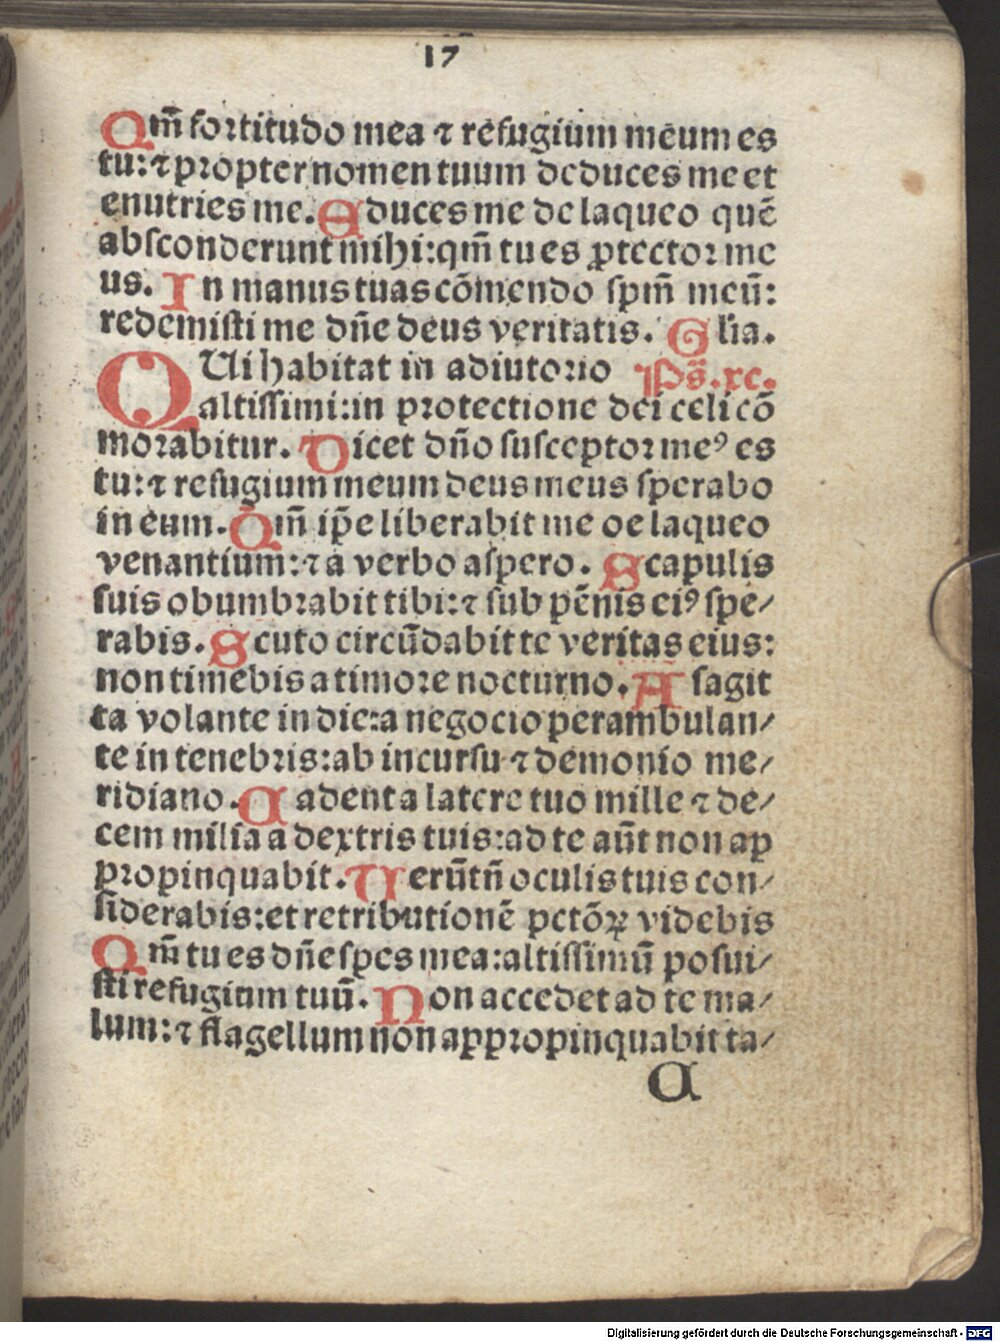 17
Qm̄ fortitudo mea ⁊ refugium meum es
tu: ⁊ propter nomen tuum deduces me et
enutries me. Educes me de laqueo quē
absconderunt mihi: qm̄ tu es ꝓtector me
us. In manus tuas cōmendo spm̄ meū:
redemisti me dn̄e deus veritatis. Glīa.
QUi habitat in adiutorio Ps̄. xc.
altissimi: in protectione dei celi cō
morabitur. Dicet dn̄o susceptor meꝰ es
tu: ⁊ refugium meum deus meus sperabo
in eum. Qm̄ ip̄e liberabit me de laqueo
venantium: ⁊ a verbo aspero. Scapulis
suis obumbrabit tibi: ⁊ sub pēnis eiꝰ spe/
rabis. Scuto circūdabit te veritas eius:
non timebis a timore nocturno. A sagit
ta volante in die: a negocio perambulan/
te in tenebris: ab incursu ⁊ demonio me/
ridiano. Cadent a latere tuo mille ⁊ de/
cem milia a dextris tuis: ad te aūt non ap
propinquabit. Verūtn̄ oculis tuis con/
siderabis: et retributionē pctōꝝ videbis
Qm̄ tu es dn̄e spes mea: altissimū posui/
sti refugium tuū. Non accedet ad te ma/
lum: ⁊ flagellum non appropinquabit ta/
C
Digitalisierung gefördert durch die Deutsche Forschungsgemeinschaft - DFG